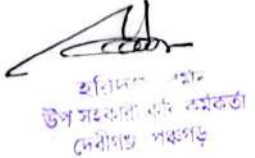 উপ সহকারী কৃষি কর্মকর্তা
দেবীগঞ্জ পঞ্চগড়